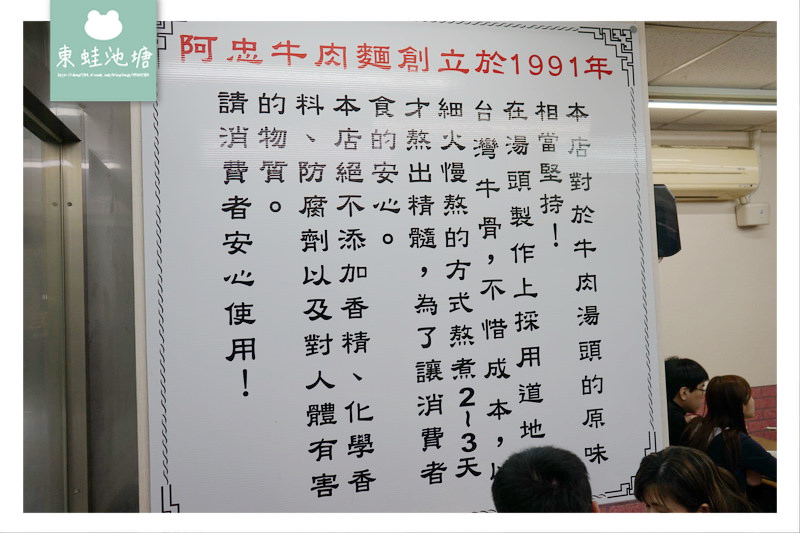 東蛙池塘
阿忠牛肉麵創立於1991年
本店對於牛肉湯頭的原味
相當堅持！
在湯頭製作上採用道地
台灣牛骨，不惜成本，以
細火慢熬的方式熬煮2~3天
才熬出精髓，為了讓消費者
食的安心。
本店絕不添加香精、化學香
料、防腐劑以及對人體有害
的物質。
請消費者安心使用！